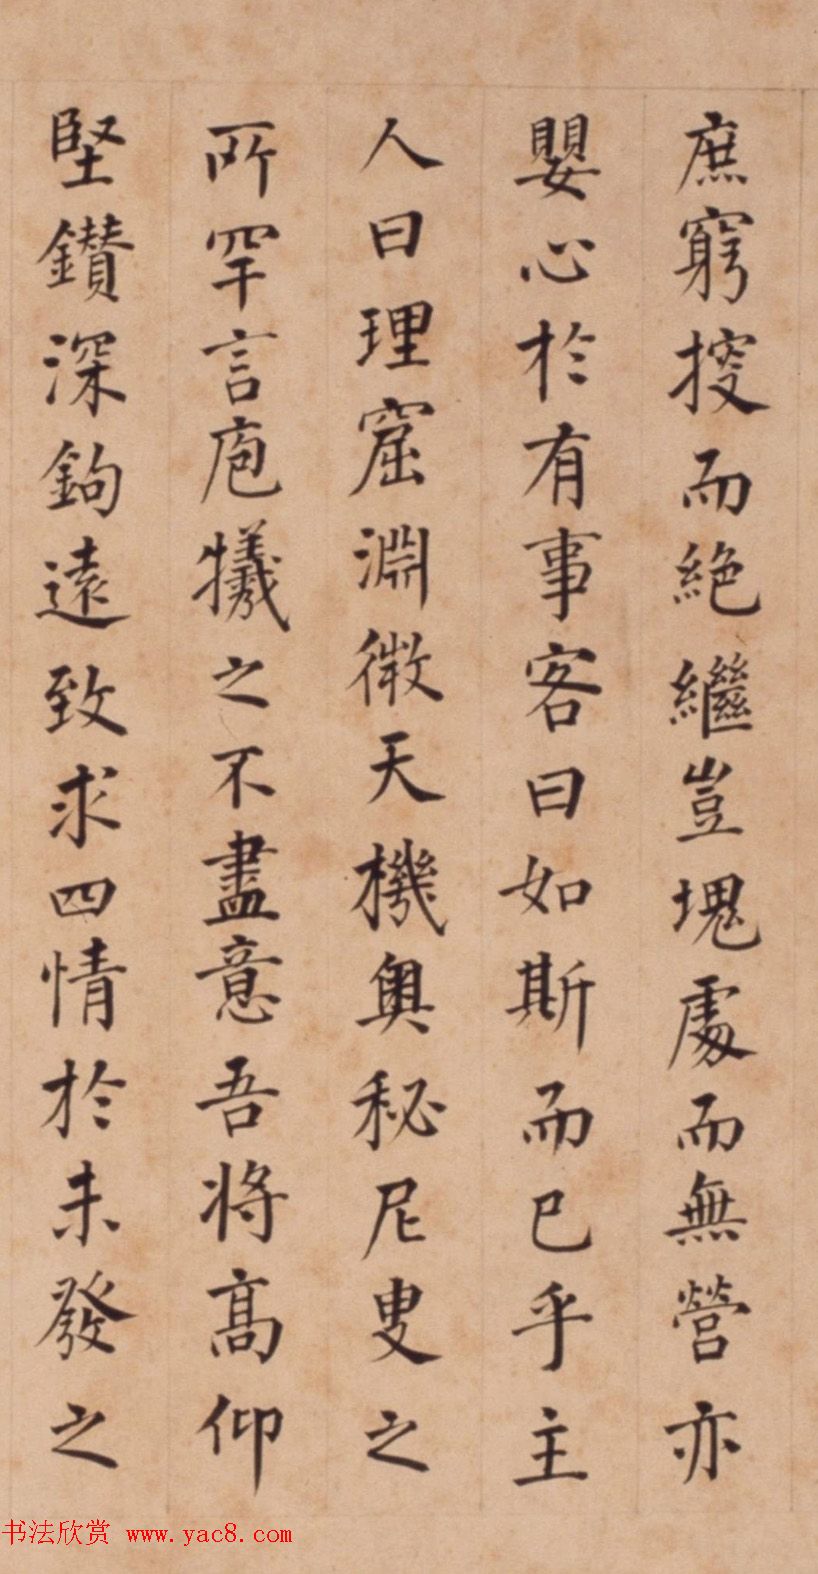 庶窮搜而絶繼豈塊處而無營亦
嬰心於有事客曰如斯而已乎主
人曰理窟淵微天機奧秘尼叟之
所罕言庖犧之不盡意吾將高仰
堅鑽深鉤遠致求四情於未發之
书法欣赏 www.yac8.com